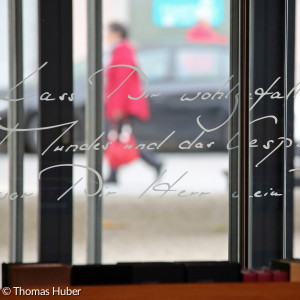 Lass Dir wohlgefal
Mundes und das Gesp
vor Dir Herr mein
© Thomas Huber